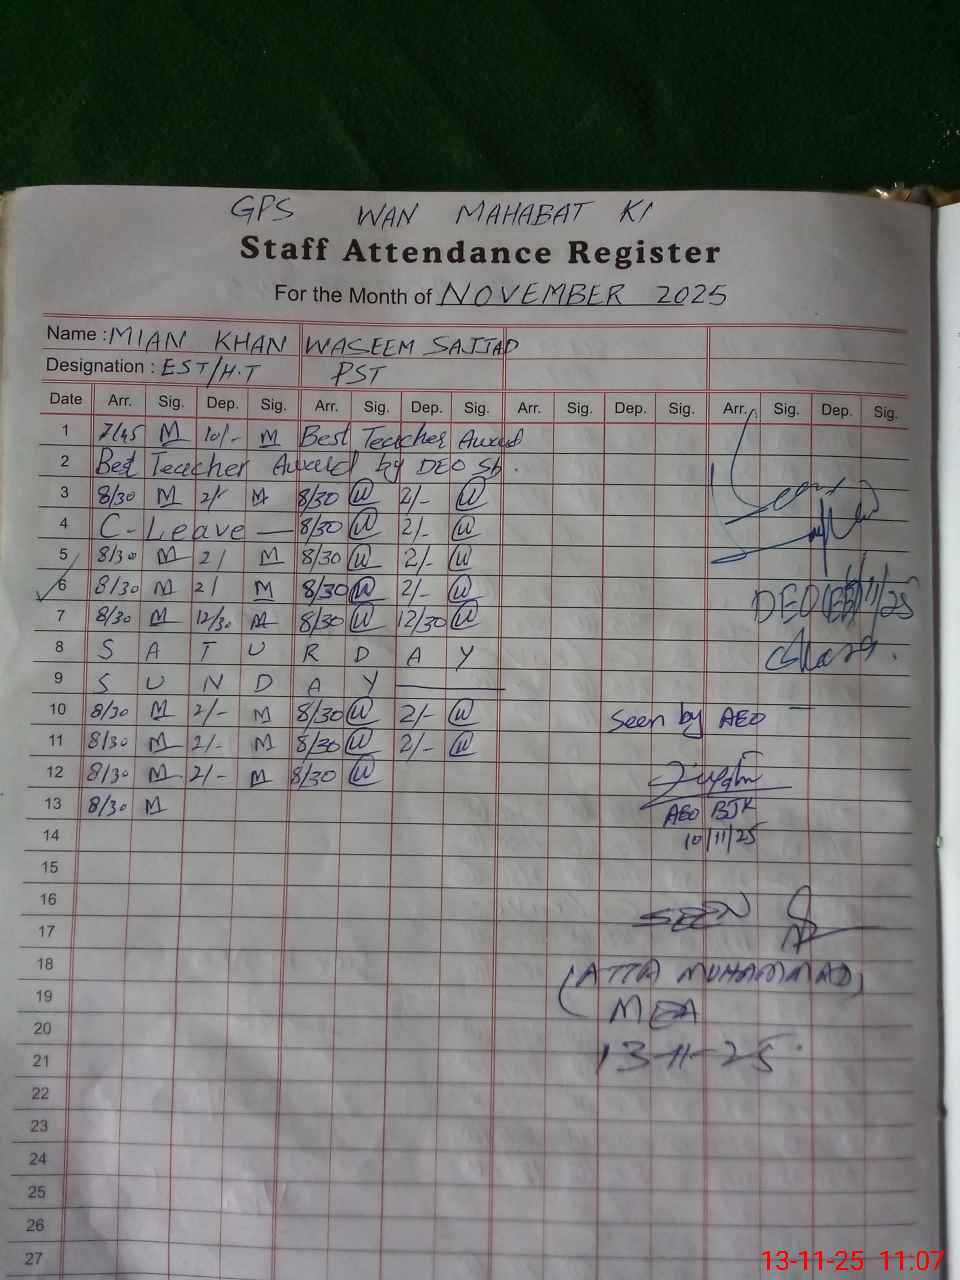 GPS WAN MAHABAT KI
Staff Attendance Register
For the Month of NOVEMBER 2025
Name : MIAN KHAN WASEEM SAJJAD
Designation : EST/H.T PST
Date Arr. Sig. Dep. Sig. Arr. Sig. Dep. Sig. Arr. Sig. Dep. Sig. Arr. Sig. Dep. Sig.
1 7/45 M 10/- M Best Teacher Award
2 Best Teacher Award by DEO Sb.
3 8/30 M 2/- M 8/30 W 2/- W
4 C-Leave — 8/30 W 2/- W
5 8/30 M 2/ M 8/30 W 2/- W
6 8/30 M 2/ M 8/30 W 2/- W
7 8/30 M 12/30 M 8/30 W 12/30 W
DEO
8 S A T U R D A Y
9 S U N D A Y
10 8/30 M 2/- M 8/30 W 2/- W Seen by AEO
11 8/30 M 2/- M 8/30 W 2/- W
12 8/30 M 2/- M 8/30 W
13 8/30 M AEO BJK
14 10/11/25
15
16
SEEN
17
18 (ATTA MUHAMMAD)
19 MEA
20
21 13-11-25
22
23
24
25
26
27
13-11-25 11:07